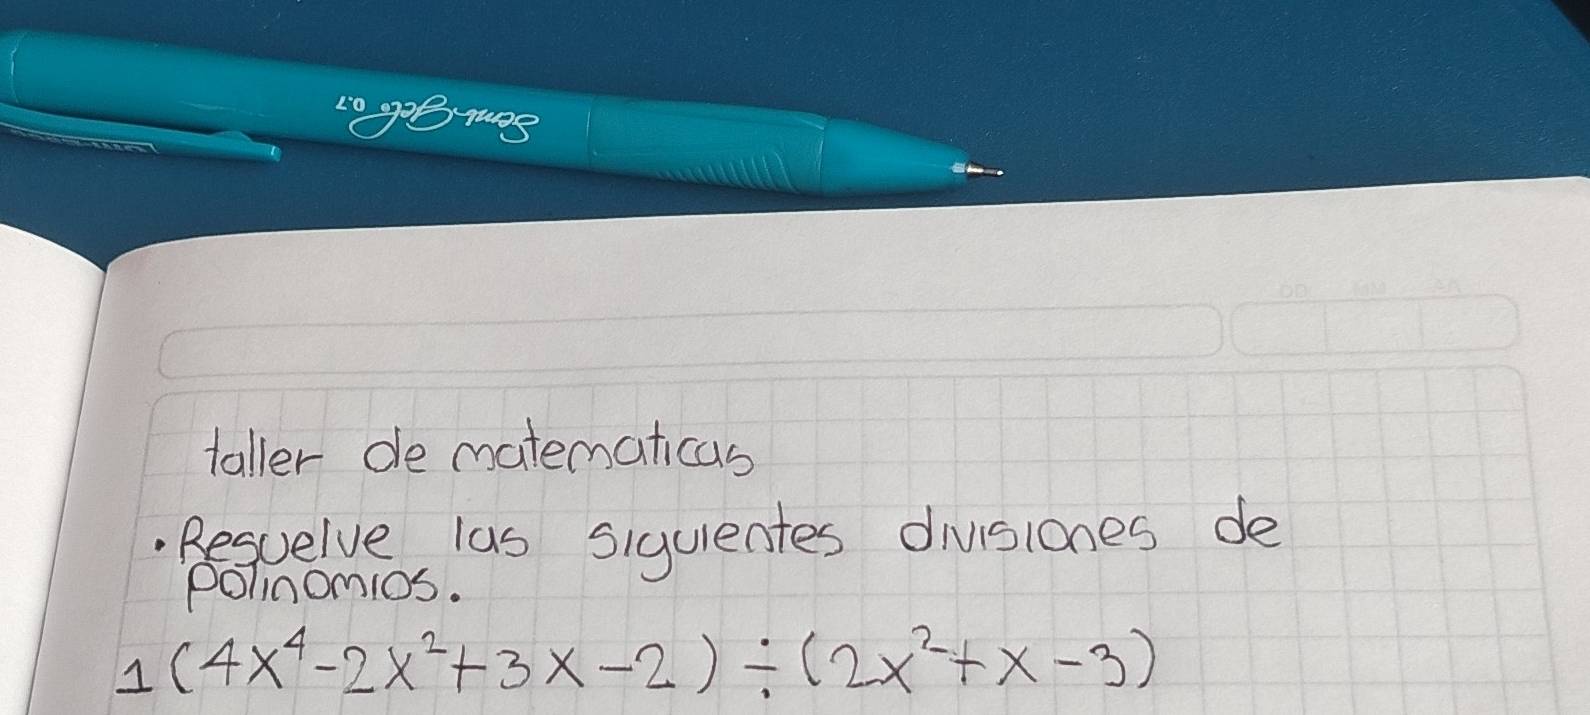 Semi-gel 0.7
DD MM AA
taller de matematicas
• Resuelve las siguientes divisiones de
polinomios.
1 (4x⁴-2x²+3x-2) ÷ (2x²+x-3)